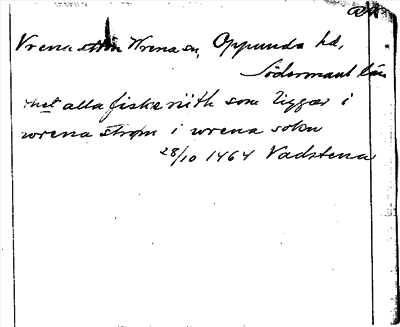 Vrena Wrena sn, Oppunda hd,
Södermanl län
alla fiske nith som ligger i
wrena strøm i wrena sokn
28/10 1464 Vadstena